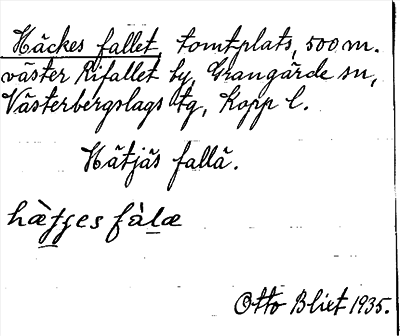 Häckes fallet, tomtplats, 500 m.
väster Rifallet by, Grangärde sn,
Västerbergslags tg, Kopp l.
Hätjäs fallä.
hàtges fàlæ
Otto Blixt 1935.